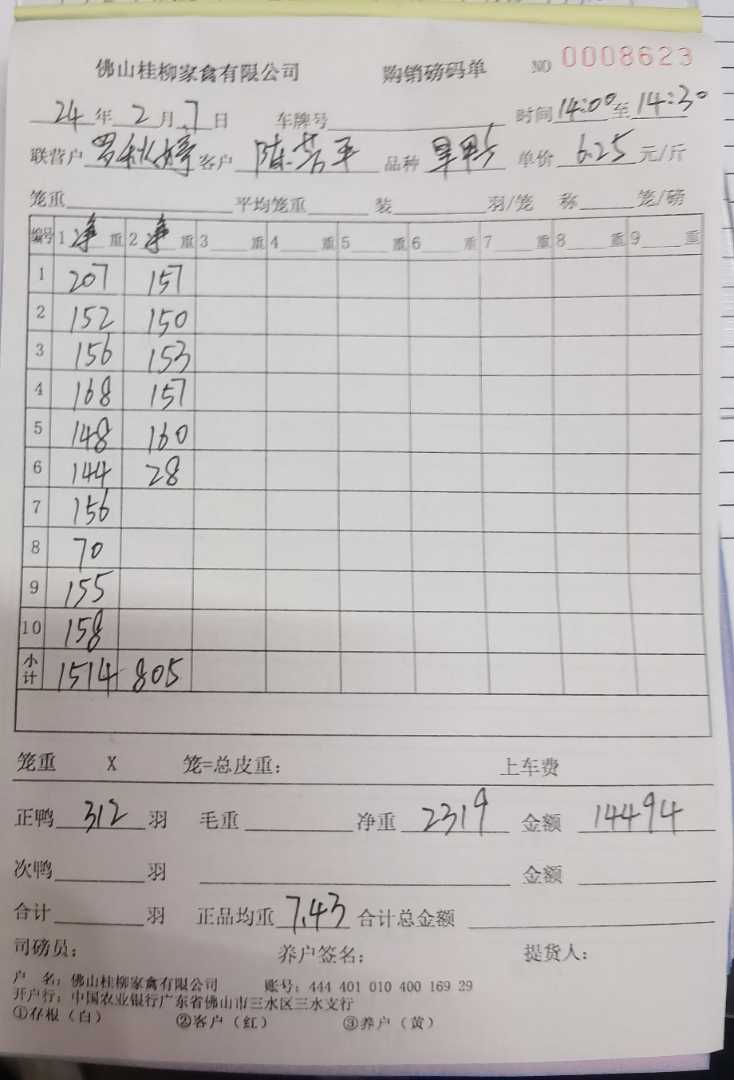 佛山桂柳家禽有限公司 购销磅码单 NO 0008623
24年2月7日 车牌号 时间14:00至14:30
联营户 罗秋婷 客户 陈芳平 品种 旱鸭 单价 6.25 元/斤
笼重 平均笼重 装 羽/笼 称 笼/磅
编号 1净重 2净重 3重 4重 5重 6重 7重 8重 9重
1 207 157
2 152 150
3 156 153
4 168 157
5 148 160
6 144 28
7 156
8 70
9 155
10 158
小计 1514 805
笼重 X 笼=总皮重: 上车费
正鸭 312 羽 毛重 净重 2319 金额 14494
次鸭 羽 金额
合计 羽 正品均重 7.43 合计总金额
司磅员: 养户签名: 提货人:
户 名: 佛山桂柳家禽有限公司 账号: 444 401 010 400 169 29
开户行: 中国农业银行广东省佛山市三水区三水支行
①存根(白) ②客户(红) ③养户(黄)